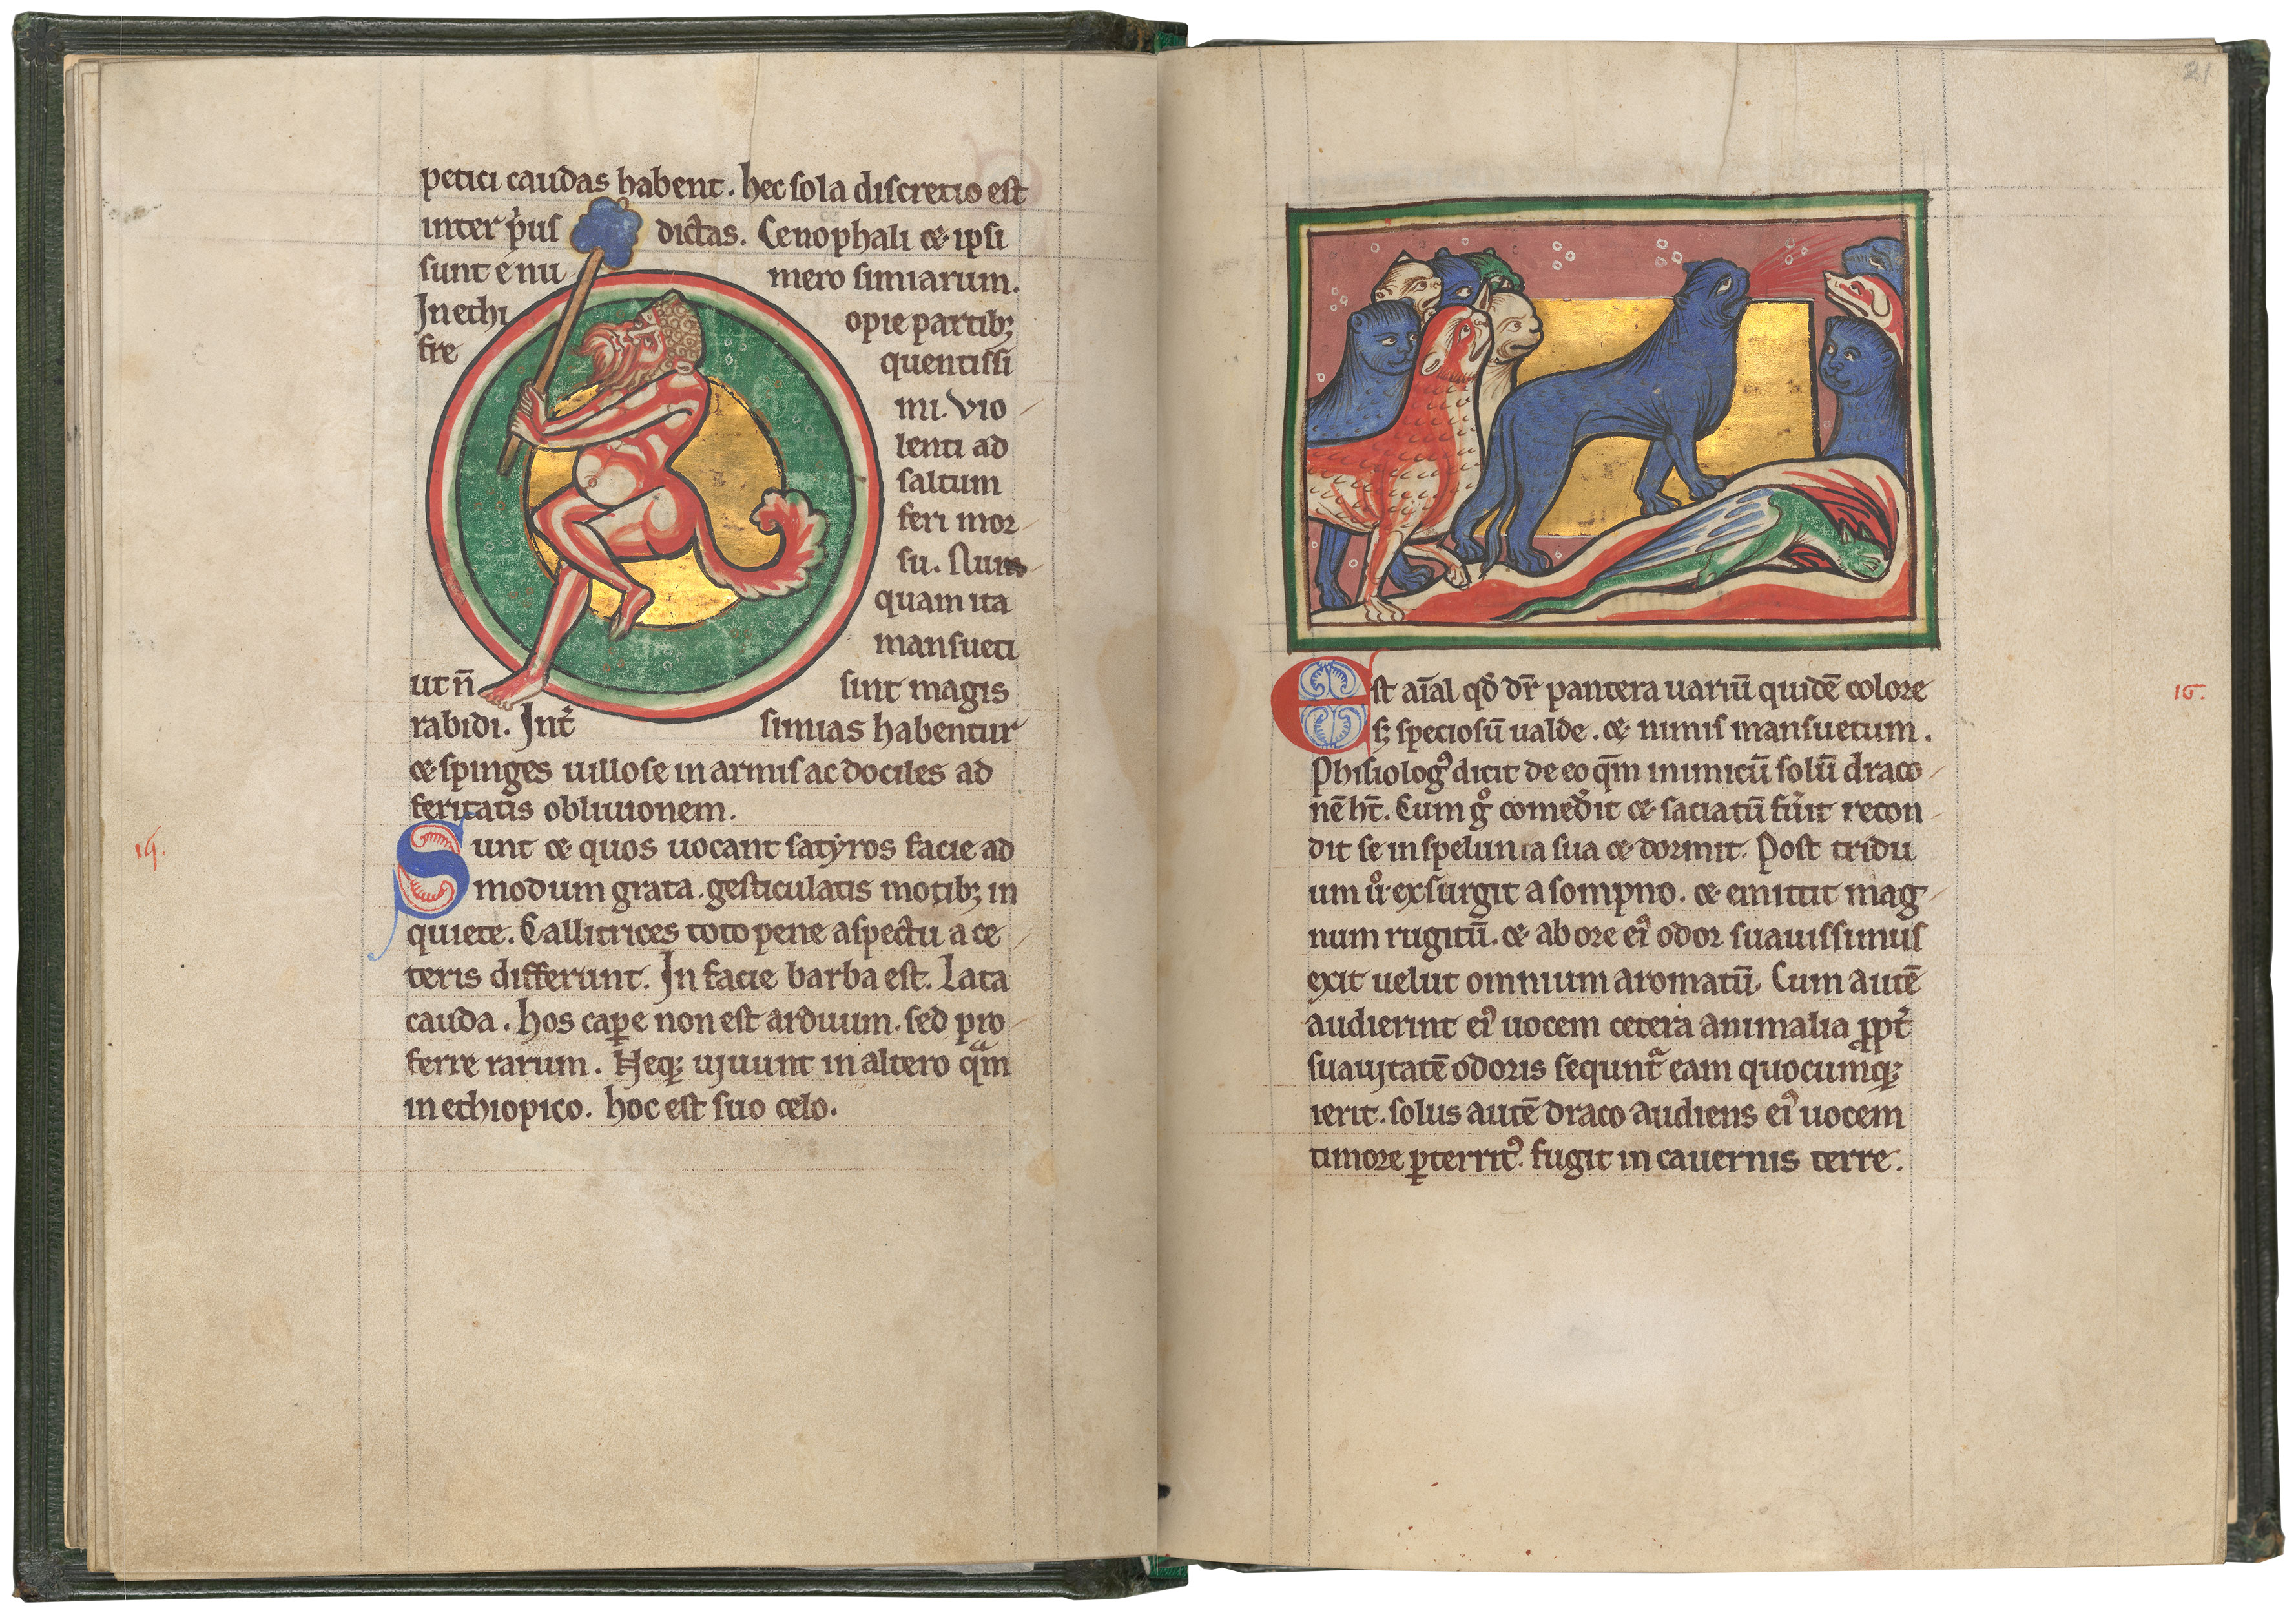 petici caudas habent. hec sola discretio est
inter p̍us dictas. Cenophali & ipsi
sunt e nu mero simiarum.
In ethi opie partibꝫ
fre quentissi
mi. Vio
lenti ad
saltum
feri mor
su. Num
quam ita
mansueti
ut n̄ sint magis
rabidi. Int̍ simias habentur
& spinges uillose in armis ac dociles ad
feritatis obliuionem.
Sunt & quos uocant satyros facie ad
modum grata. gesticulatis motibꝫ in
quiete. Callitrices toto pene aspectu a ce
teris differunt. In facie barba est. Lata
cauda. hos cap̱e non est arduum. sed pro
ferre rarum. Neqꝫ uiuunt in altero qᵃm
in ethiopico. hoc est suo celo.
21
Est aīal qd̄ dr̄ pantera uariū quidē colore
sꝫ speciosū ualde. & nimis mansuetum.
Phisiologꝰ dicit de eo qm̄ inimicū solū draco
nē ht̄. Cum gͦ comed̍it & saciatū fu̍it recon
dit se in spelunca sua & dormit. Post tridu
um uͦ exsurgit a sompno. & emittit mag
num rugitū. & ab ore eiꝰ odor suauissimus
exit uelut omnium aromatū. Cum autē
audierint eiꝰ uocem cetera animalia ꝓpt̍
suauitatē odoris sequntᷣ eam quocumqꝫ
ierit. solus autē draco audiens eiꝰ uocem
timore ꝑterritꝰ. fugit in cauernis terre.